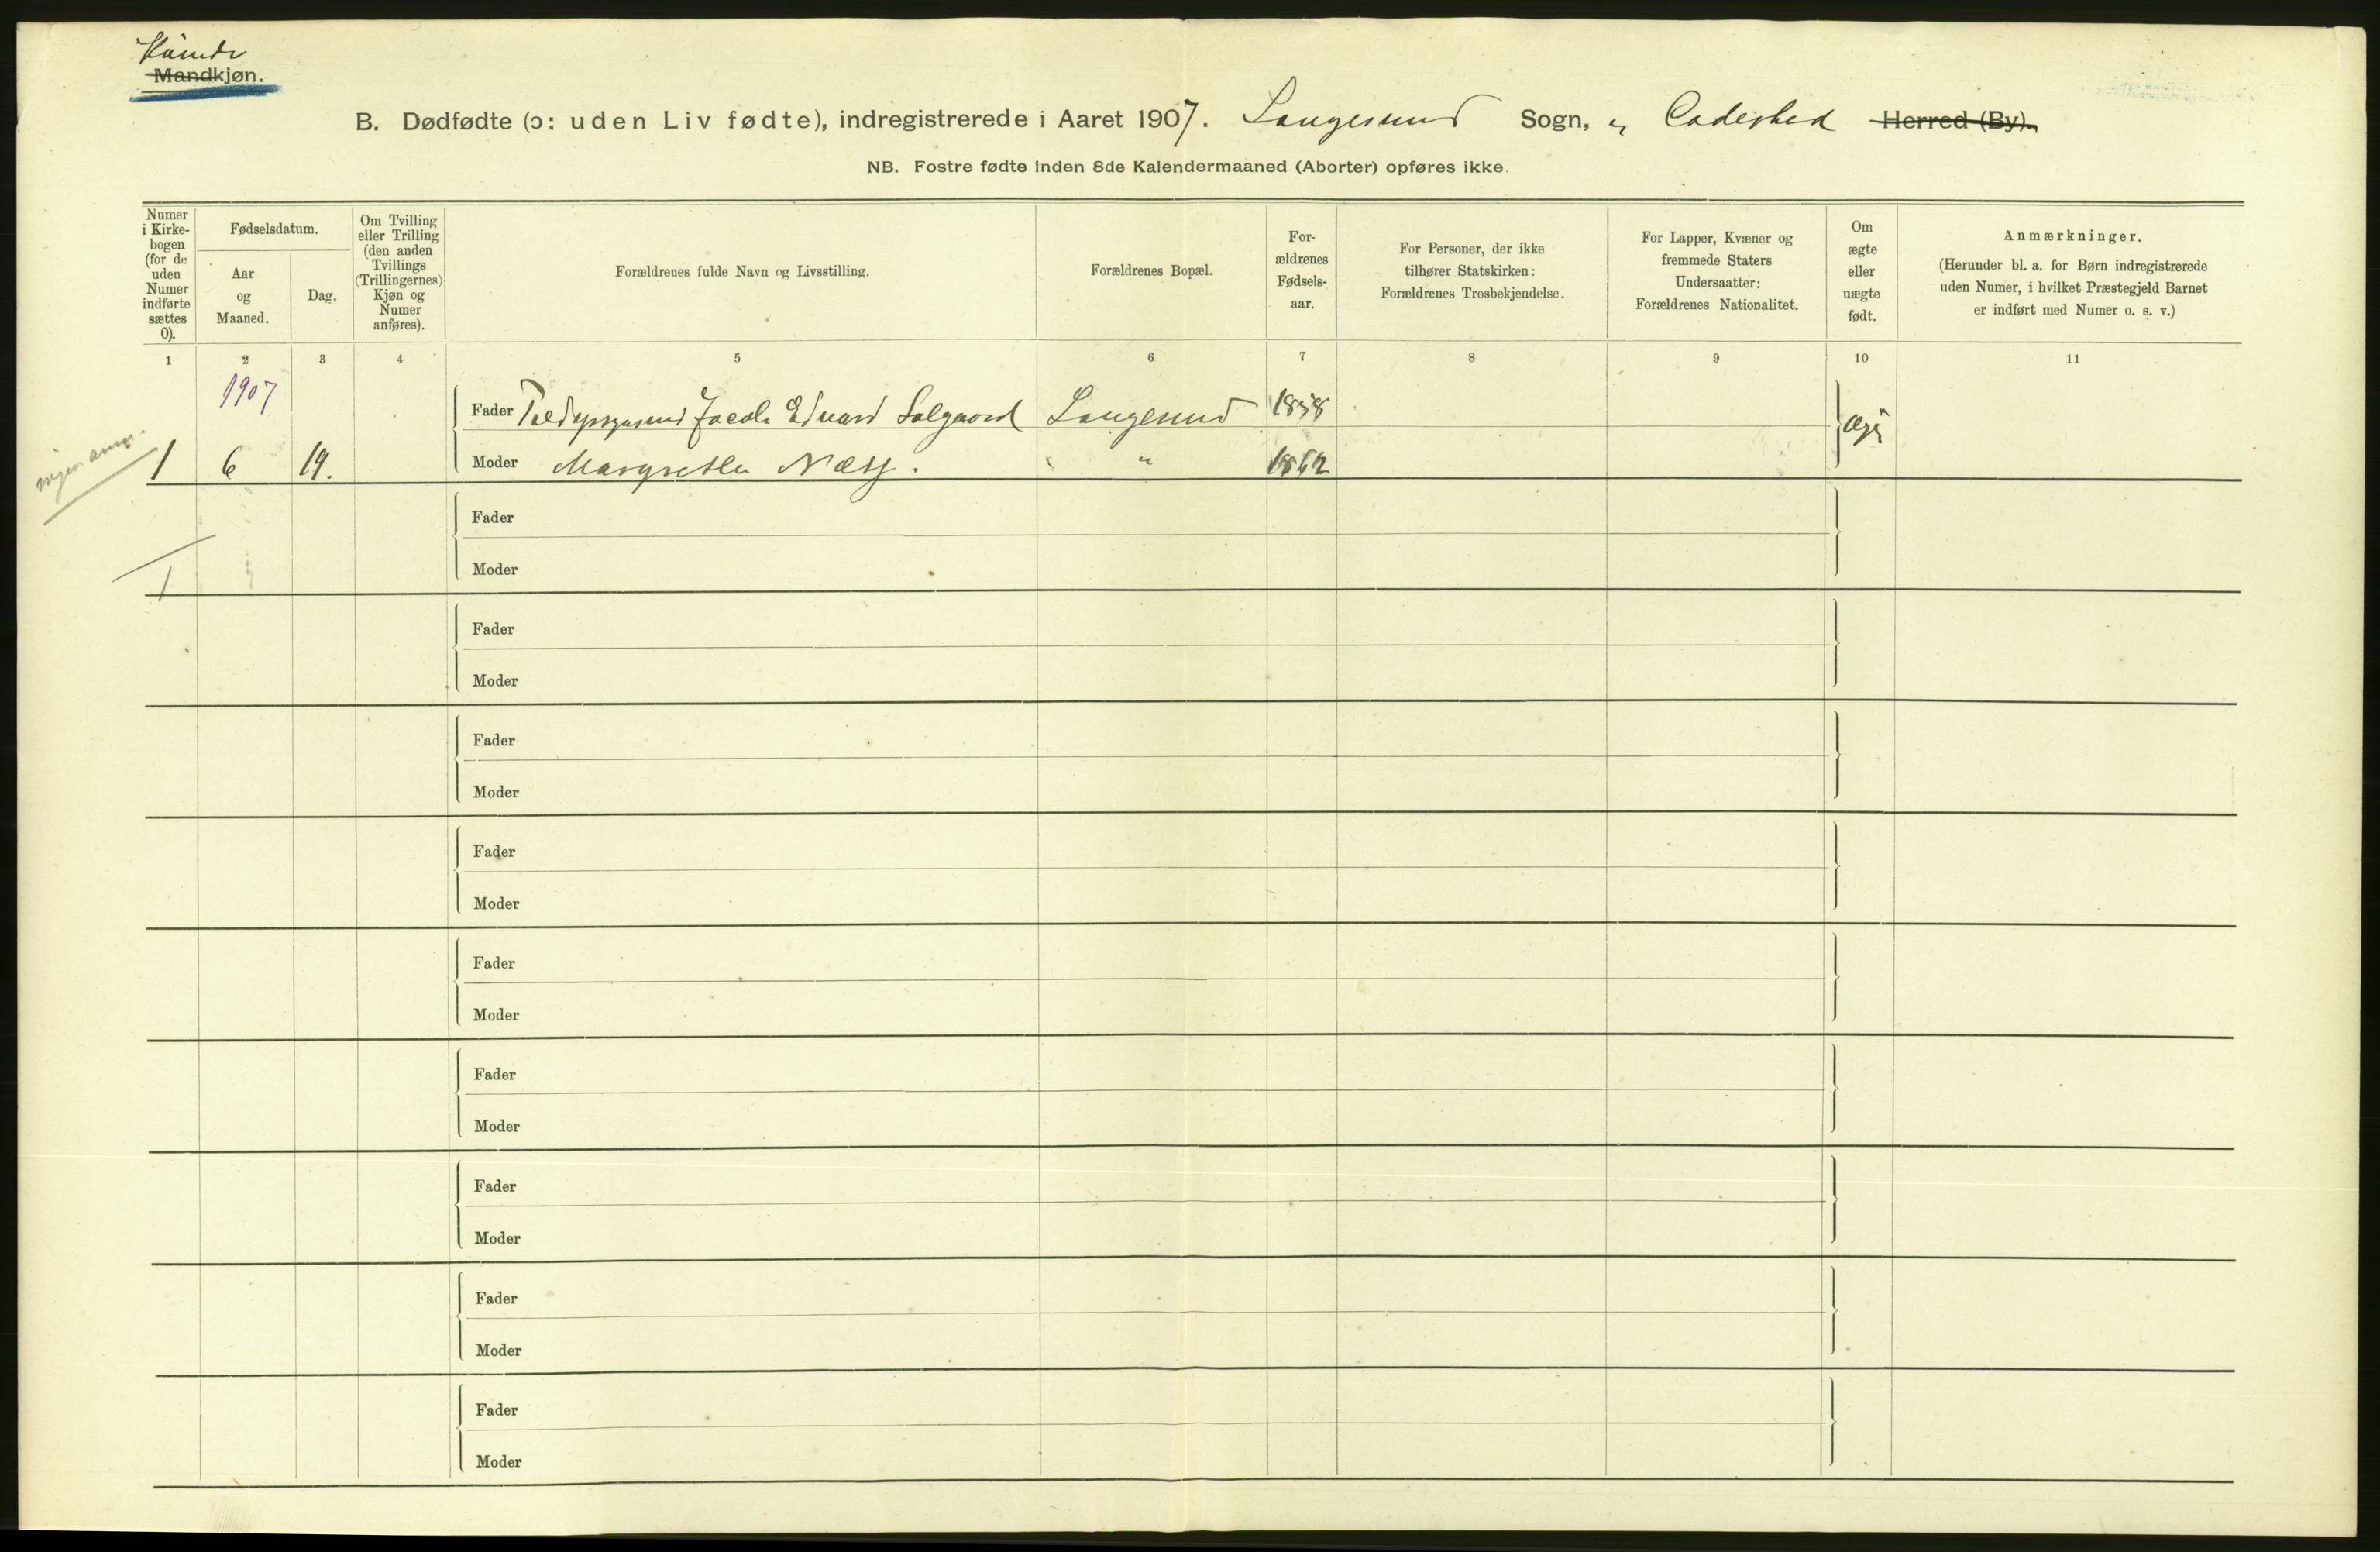 Kvinde
Mandkjøn.
B. Dødfødte (ɔ: uden Liv fødte), indregistrerede i Aaret 1907. Langesund Sogn, og Ladested Herred (By).
NB. Fostre fødte inden 8de Kalendermaaned (Aborter) opføres ikke.
Numer i Kirke-bogen (for de uden Numer indførte sættes 0).
Fødselsdatum.
Aar og Maaned.
Dag.
Om Tvilling eller Trilling (den anden Tvillings (Trillingernes) Kjøn og Numer anføres).
Forældrenes fulde Navn og Livsstilling.
Forældrenes Bopæl.
For-ældrenes Fødsels-aar.
For Personer, der ikke tilhører Statskirken: Forældrenes Trosbekjendelse.
For Lapper, Kvæner og fremmede Staters Undersaatter: Forældrenes Nationalitet.
Om ægte eller uægte født.
Anmærkninger.
(Herunder bl. a. for Børn indregistrerede uden Numer, i hvilket Præstegjeld Barnet er indført med Numer o. s. v.)
1 2 3 4 5 6 7 8 9 10 11
1907
Fader Jacob Edvard Salgaard Langesund 1858
Ægte
1 6 19. Moder Margrethe Næss. " 1862
Fader
1 Moder
Fader
Moder
Fader
Moder
Fader
Moder
Fader
Moder
Fader
Moder
Fader
Moder
Fader
Moder
Fader
Moder